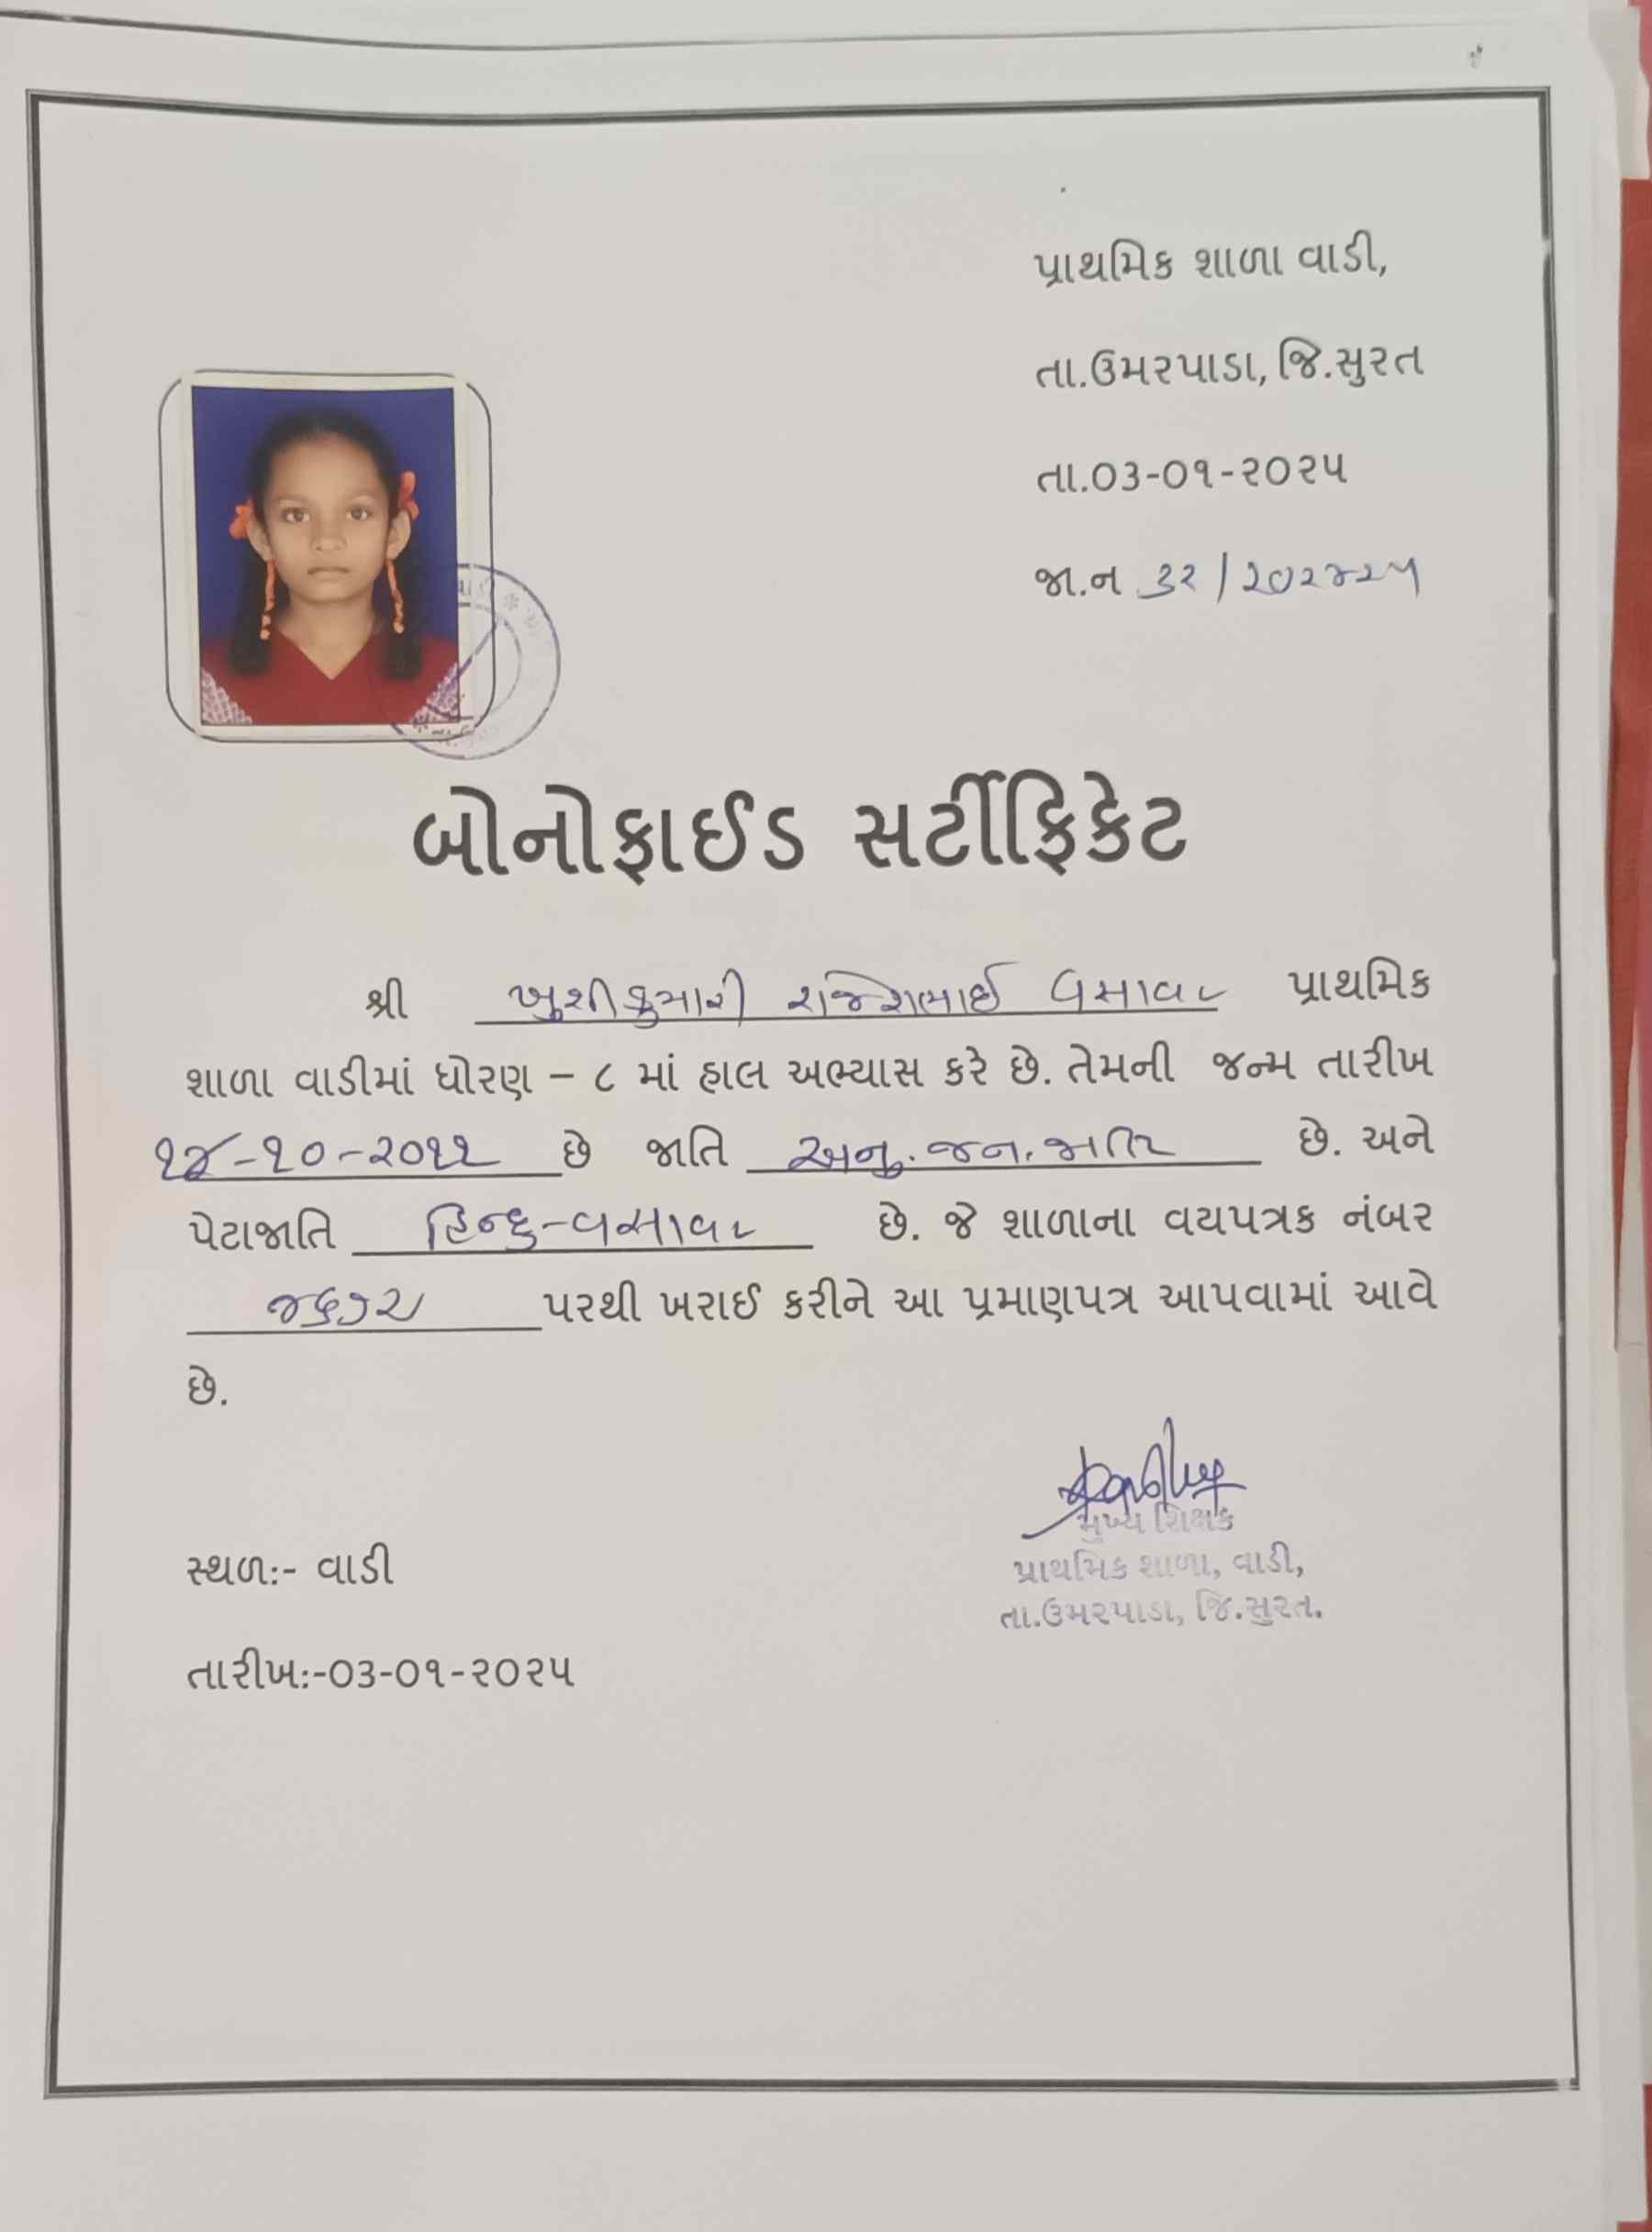 પ્રાથમિક શાળા વાડી,
તા.ઉમરપાડા, જિ.સુરત
તા.૦૩-૦૧-૨૦૨૫
જા.ન ૩૨ / ૨૦૨૪૨૫
બોનોફાઈડ સર્ટીફિકેટ
શ્રી ખુશીકુમારી રાજેશભાઈ વસાવા પ્રાથમિક
શાળા વાડીમાં ધોરણ – ૮ માં હાલ અભ્યાસ કરે છે. તેમની જન્મ તારીખ
૧૪-૧૦-૨૦૧૧ છે જાતિ અનુ. જન. જાતિ છે. અને
પેટાજાતિ હિન્દુ-વસાવા છે. જે શાળાના વયપત્રક નંબર
પરથી ખરાઈ કરીને આ પ્રમાણપત્ર આપવામાં આવે
છે.
મુખ્ય શિક્ષક
પ્રાથમિક શાળા, વાડી,
તા.ઉમરપાડા, જિ.સુરત.
સ્થળ:- વાડી
તારીખ:-૦૩-૦૧-૨૦૨૫